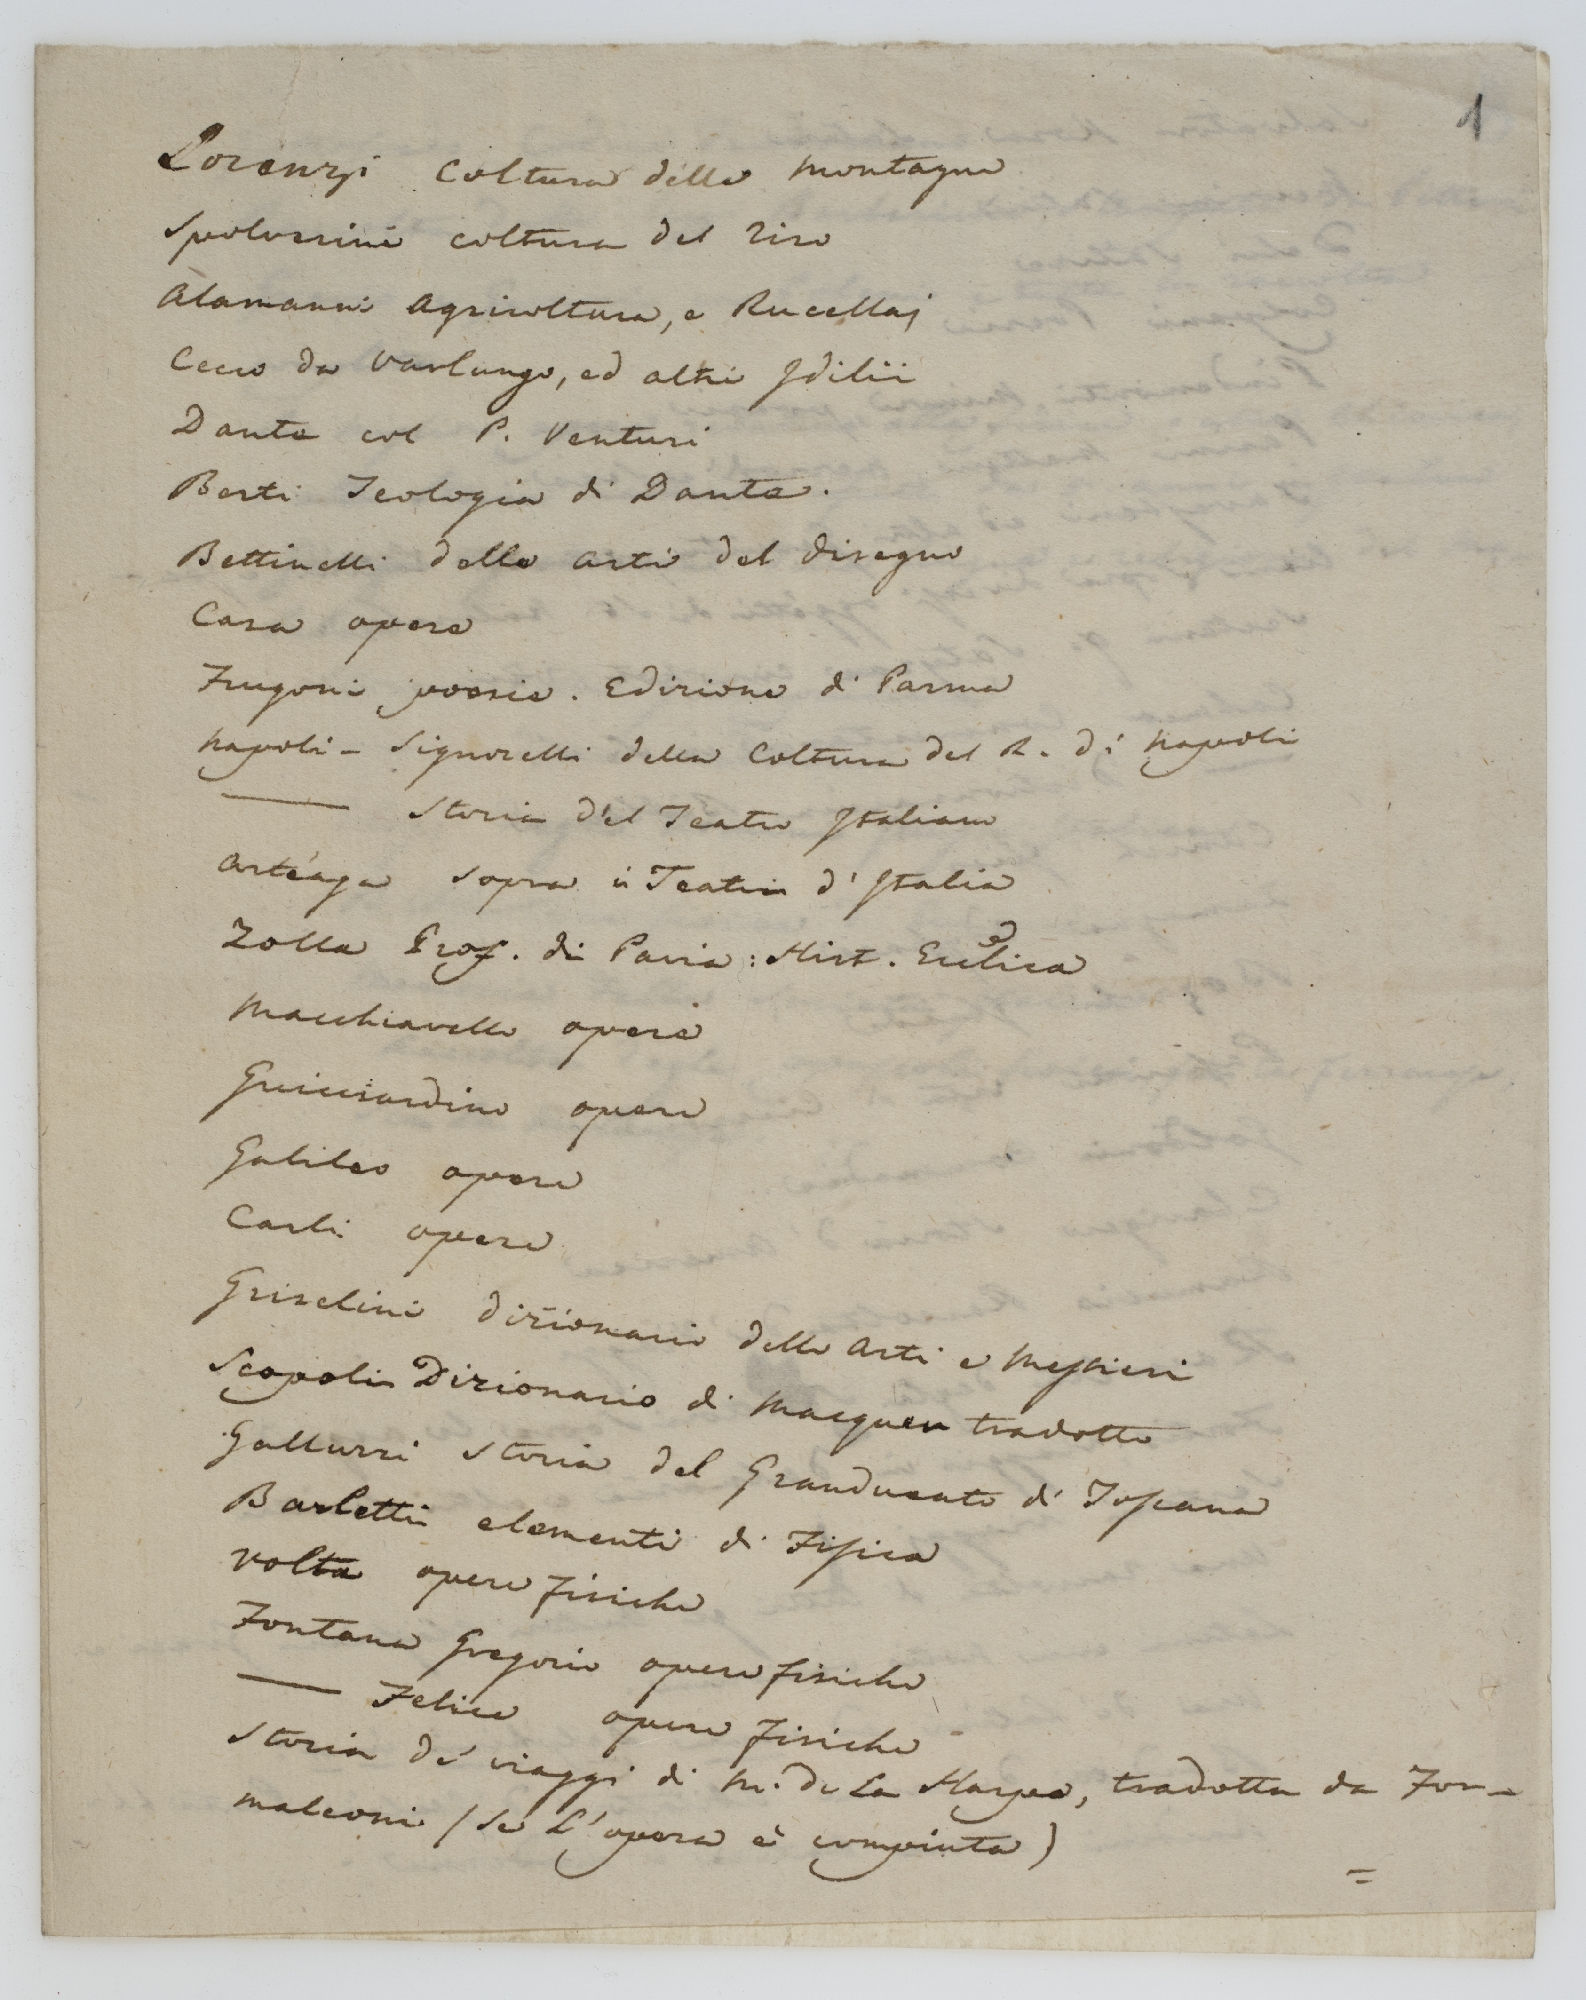 1
Lorenzi Coltura delle montagne
Spolverini coltura del riso
Alamanni Agricoltura, e Rucellaj
Cecco da Varlungo, ed altri Jdilii
Dante col P. Venturi
Berti Teologia di Dante.
Bettinelli delle arti del disegno
Casa opere
Frugoni poesie. Edizione di Parma
Napoli - Signorelli della Coltura del R. di Napoli
——— Storia del Teatro Jtaliano
Arteaga sopra ii Teatri d'Jtalia
Zolla Prof. di Pavia: Hist. Eccl.ica
Macchiavello opere
Guicciardino opere
Galileo opere
Carli opere
Griselini dizionario delle Arti e Mestieri
Scopoli Dizionario di Macquer tradotto
Galluzzi Storia del Granducato di Toscana
Barletti elementi di Fisica
Volta opere fisiche
Fontana Gregorio opere fisiche
——— Felice opere fisiche
Storia de' viaggi di M. De La Harpe, tradotta da For-
maleoni (se L'opera è compiuta)
=